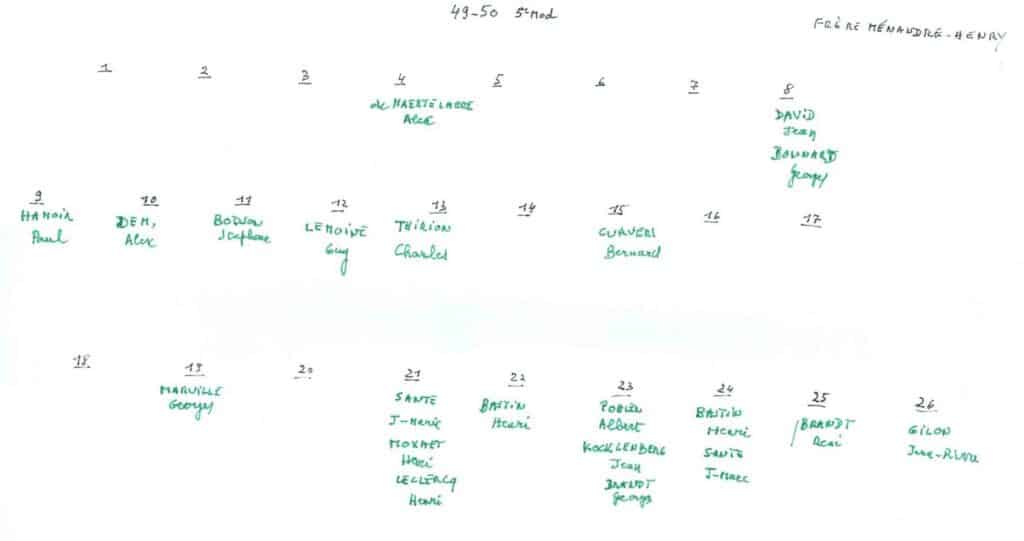 49-50 5e Mod
FRÈRE MÉNANDRE-HENRY
1 2 3 4 5 6 7 8
de MAERTELAERE
Alex
DAVID
Jean
BONNARD
Georges
9 10 11 12 13 14 15 16 17
HANOIR
Paul
DEM,
Alex
BODSON
Stéphane
LEMOINE
Guy
THIRION
Charles
CUAVERS
Bernard
18 19 20 21 22 23 24 25 26
MARVILLE
Georges
SANTE
J-Marie
Henri
LECLERCQ
Henri
BASTIN
Henri
Albert
KOCKLENBERG
Jean
BRANDT
Georges
BASTIN
Henri
SANTE
J-Marc
BRANDT
René
GILON